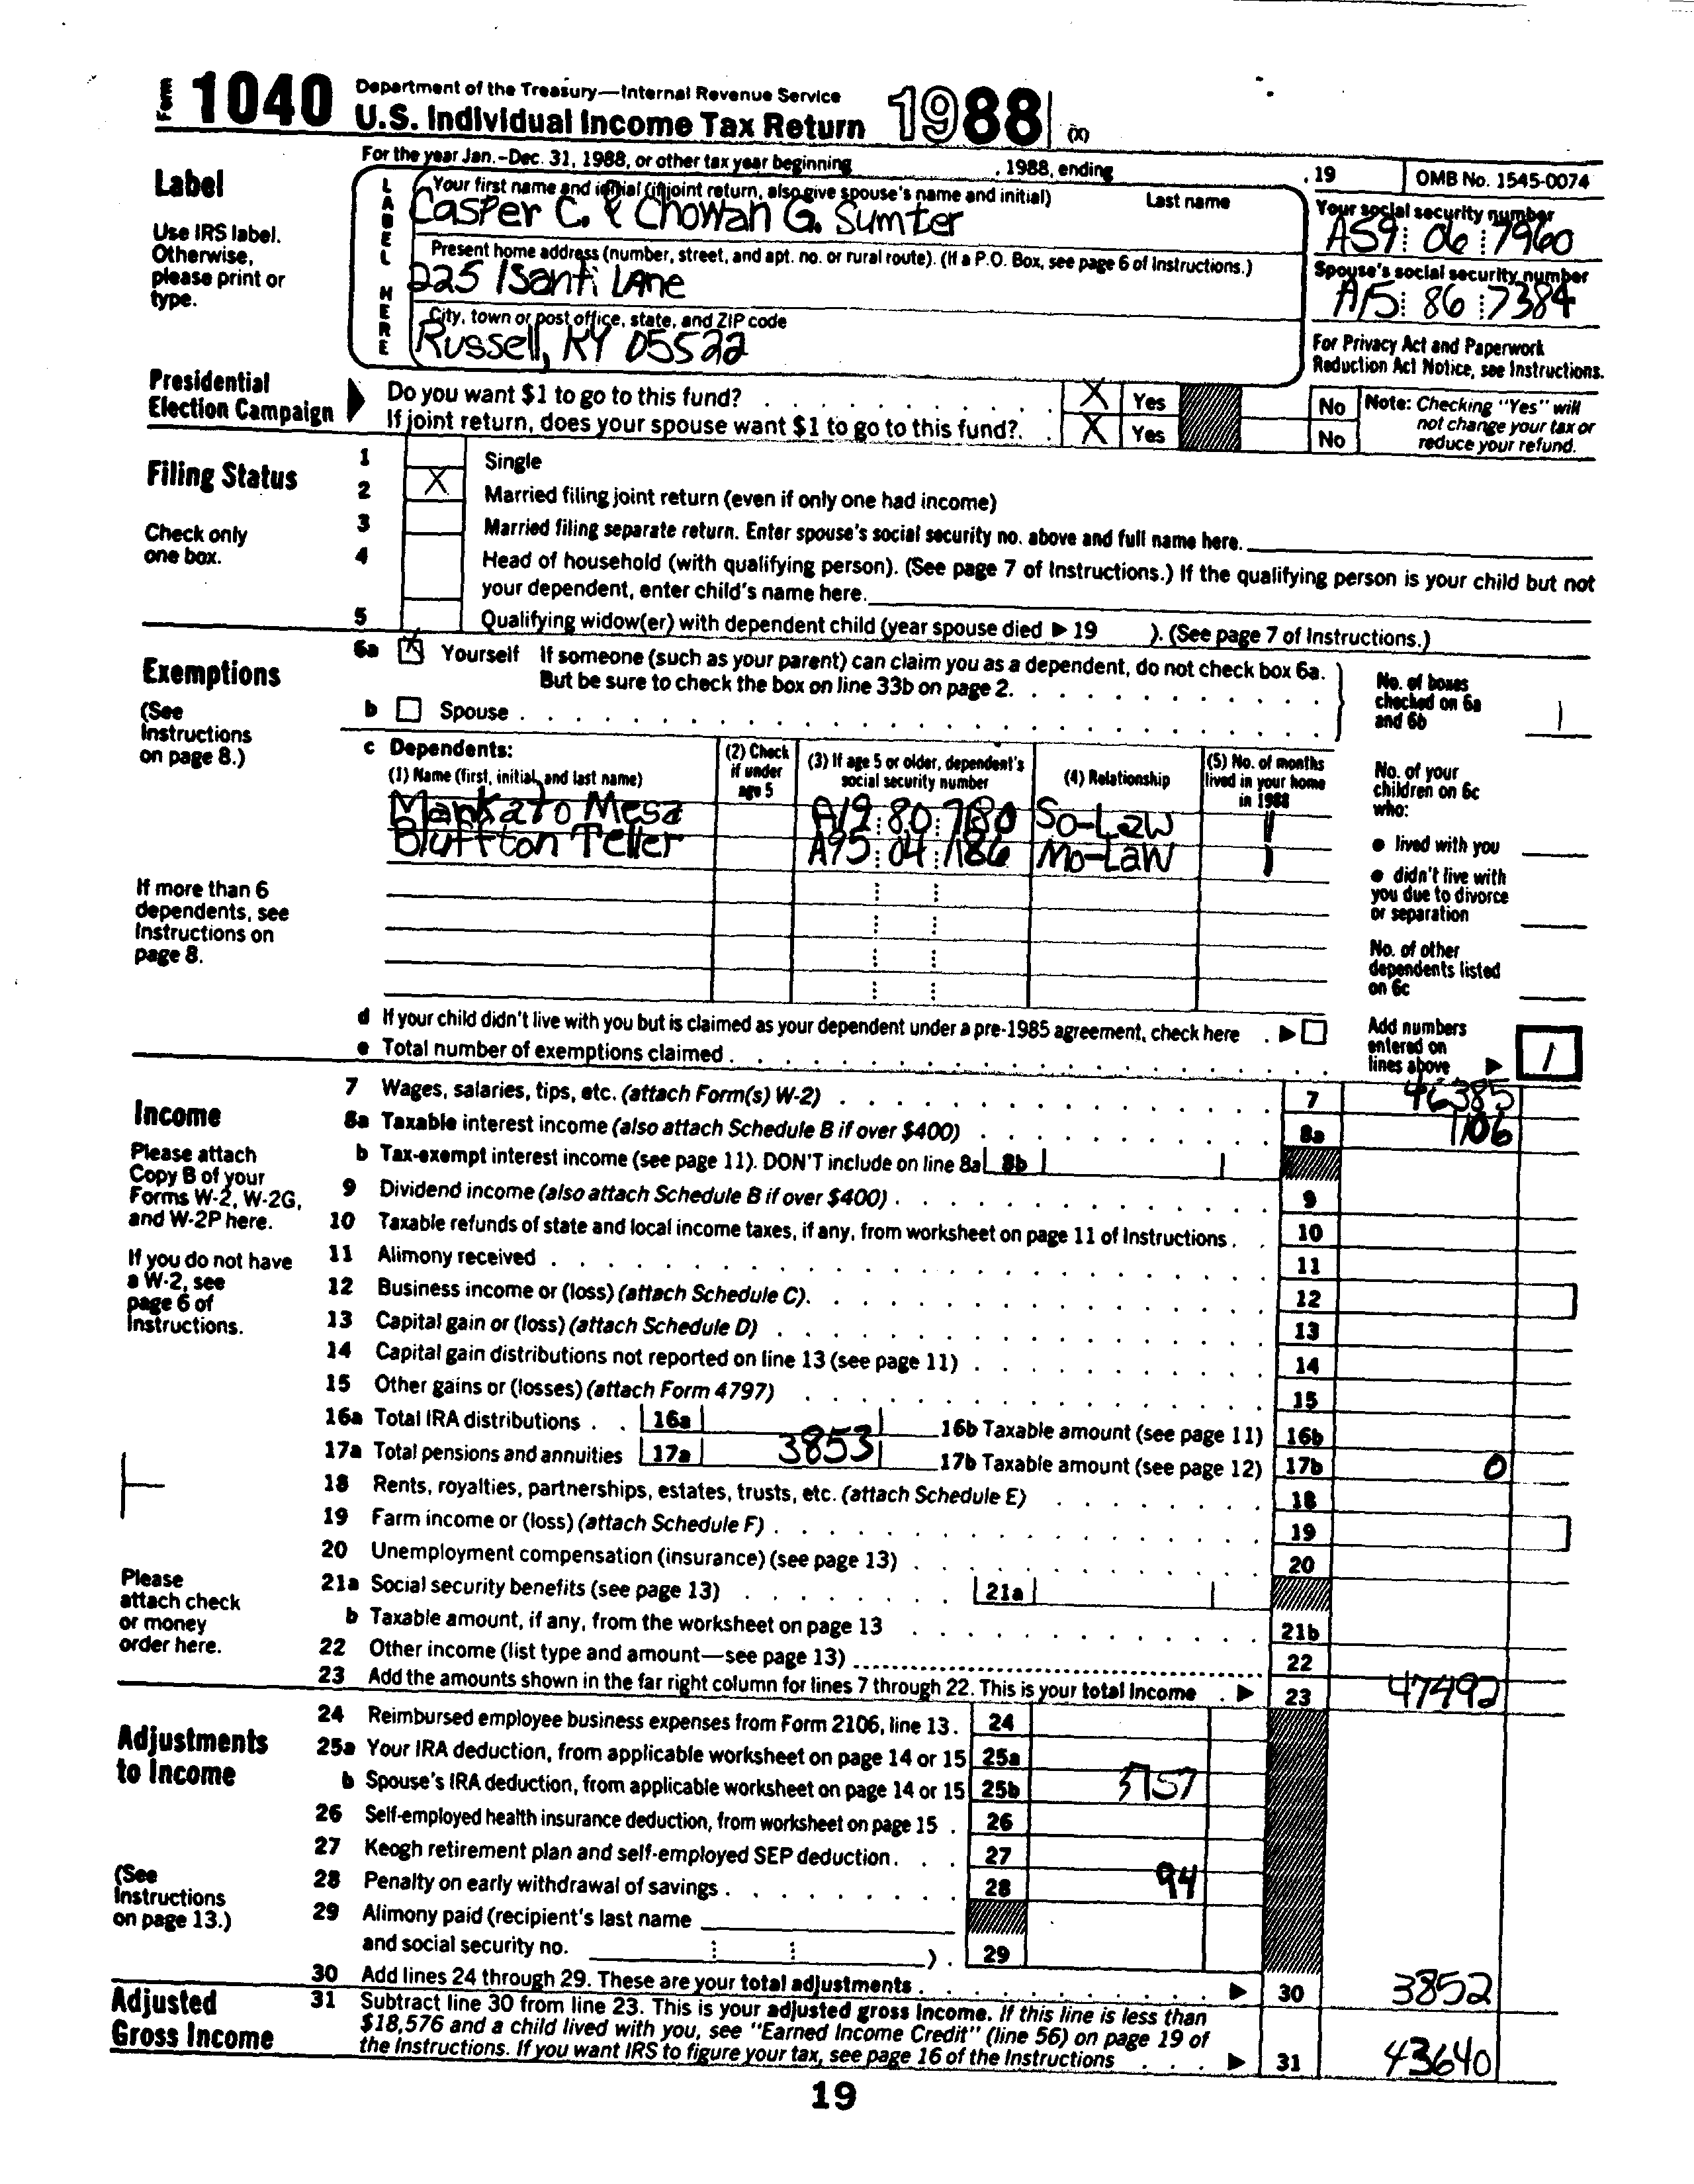 Form 1040 Department of the Treasury—Internal Revenue Service
U.S. Individual Income Tax Return 1988 (X)
For the year Jan.-Dec. 31, 1988, or other tax year beginning , 1988, ending , 19 OMB No. 1545-0074
Label
Use IRS label.
Otherwise,
please print or
type.
LABEL HERE
Your first name and initial (if joint return, also give spouse's name and initial) Last name
Casper C. & Chowan G. Sumter
Your social security number
A59 06 7960
Present home address (number, street, and apt. no. or rural route). (If a P.O. Box, see page 6 of Instructions.)
225 Isanti Lane
Spouse's social security number
A15 86 7384
City, town or post office, state, and ZIP code
Russell, KY 05522
For Privacy Act and Paperwork
Reduction Act Notice, see Instructions.
Presidential
Election Campaign
Do you want $1 to go to this fund? X Yes No
If joint return, does your spouse want $1 to go to this fund?. X Yes No
Note: Checking "Yes" will
not change your tax or
reduce your refund.
Filing Status
Check only
one box.
1 Single
2 X Married filing joint return (even if only one had income)
3 Married filing separate return. Enter spouse's social security no. above and full name here.
4 Head of household (with qualifying person). (See page 7 of Instructions.) If the qualifying person is your child but not
your dependent, enter child's name here.
5 Qualifying widow(er) with dependent child (year spouse died ▶ 19 ). (See page 7 of Instructions.)
Exemptions
(See
Instructions
on page 8.)
6a X Yourself If someone (such as your parent) can claim you as a dependent, do not check box 6a.
But be sure to check the box on line 33b on page 2.
b Spouse
No. of boxes
checked on 6a
and 6b 1
c Dependents:
(1) Name (first, initial, and last name)
(2) Check
if under
age 5
(3) If age 5 or older, dependent's
social security number
(4) Relationship
(5) No. of months
lived in your home
in 1988
Mankato Mesa A19 80 7180 So-Law 1
Bluffton Teller A95 04 1186 Mo-Law 1
No. of your
children on 6c
who:
● lived with you
● didn't live with
you due to divorce
or separation
No. of other
dependents listed
on 6c
If more than 6
dependents, see
Instructions on
page 8.
d If your child didn't live with you but is claimed as your dependent under a pre-1985 agreement, check here ▶
e Total number of exemptions claimed
Add numbers
entered on
lines above ▶ 1
Income
Please attach
Copy B of your
Forms W-2, W-2G,
and W-2P here.
If you do not have
a W-2, see
page 6 of
Instructions.
7 Wages, salaries, tips, etc. (attach Form(s) W-2) 7 46385
8a Taxable interest income (also attach Schedule B if over $400) 8a 1106
b Tax-exempt interest income (see page 11). DON'T include on line 8a 8b
9 Dividend income (also attach Schedule B if over $400) 9
10 Taxable refunds of state and local income taxes, if any, from worksheet on page 11 of Instructions 10
11 Alimony received 11
12 Business income or (loss) (attach Schedule C). 12
13 Capital gain or (loss) (attach Schedule D) 13
14 Capital gain distributions not reported on line 13 (see page 11) 14
15 Other gains or (losses) (attach Form 4797) 15
16a Total IRA distributions 16a 16b Taxable amount (see page 11) 16b
17a Total pensions and annuities 17a 3853 17b Taxable amount (see page 12) 17b 0
18 Rents, royalties, partnerships, estates, trusts, etc. (attach Schedule E) 18
19 Farm income or (loss) (attach Schedule F) 19
20 Unemployment compensation (insurance) (see page 13) 20
21a Social security benefits (see page 13) 21a
b Taxable amount, if any, from the worksheet on page 13 21b
22 Other income (list type and amount—see page 13) 22
23 Add the amounts shown in the far right column for lines 7 through 22. This is your total income ▶ 23 47492
Please
attach check
or money
order here.
Adjustments
to Income
(See
Instructions
on page 13.)
24 Reimbursed employee business expenses from Form 2106, line 13. 24
25a Your IRA deduction, from applicable worksheet on page 14 or 15 25a
b Spouse's IRA deduction, from applicable worksheet on page 14 or 15 25b 3757
26 Self-employed health insurance deduction, from worksheet on page 15 26
27 Keogh retirement plan and self-employed SEP deduction 27
28 Penalty on early withdrawal of savings 28 94
29 Alimony paid (recipient's last name
and social security no. ). 29
30 Add lines 24 through 29. These are your total adjustments ▶ 30 3852
Adjusted
Gross Income
31 Subtract line 30 from line 23. This is your adjusted gross income. If this line is less than
$18,576 and a child lived with you, see "Earned Income Credit" (line 56) on page 19 of
the Instructions. If you want IRS to figure your tax, see page 16 of the Instructions ▶ 31 43640
19